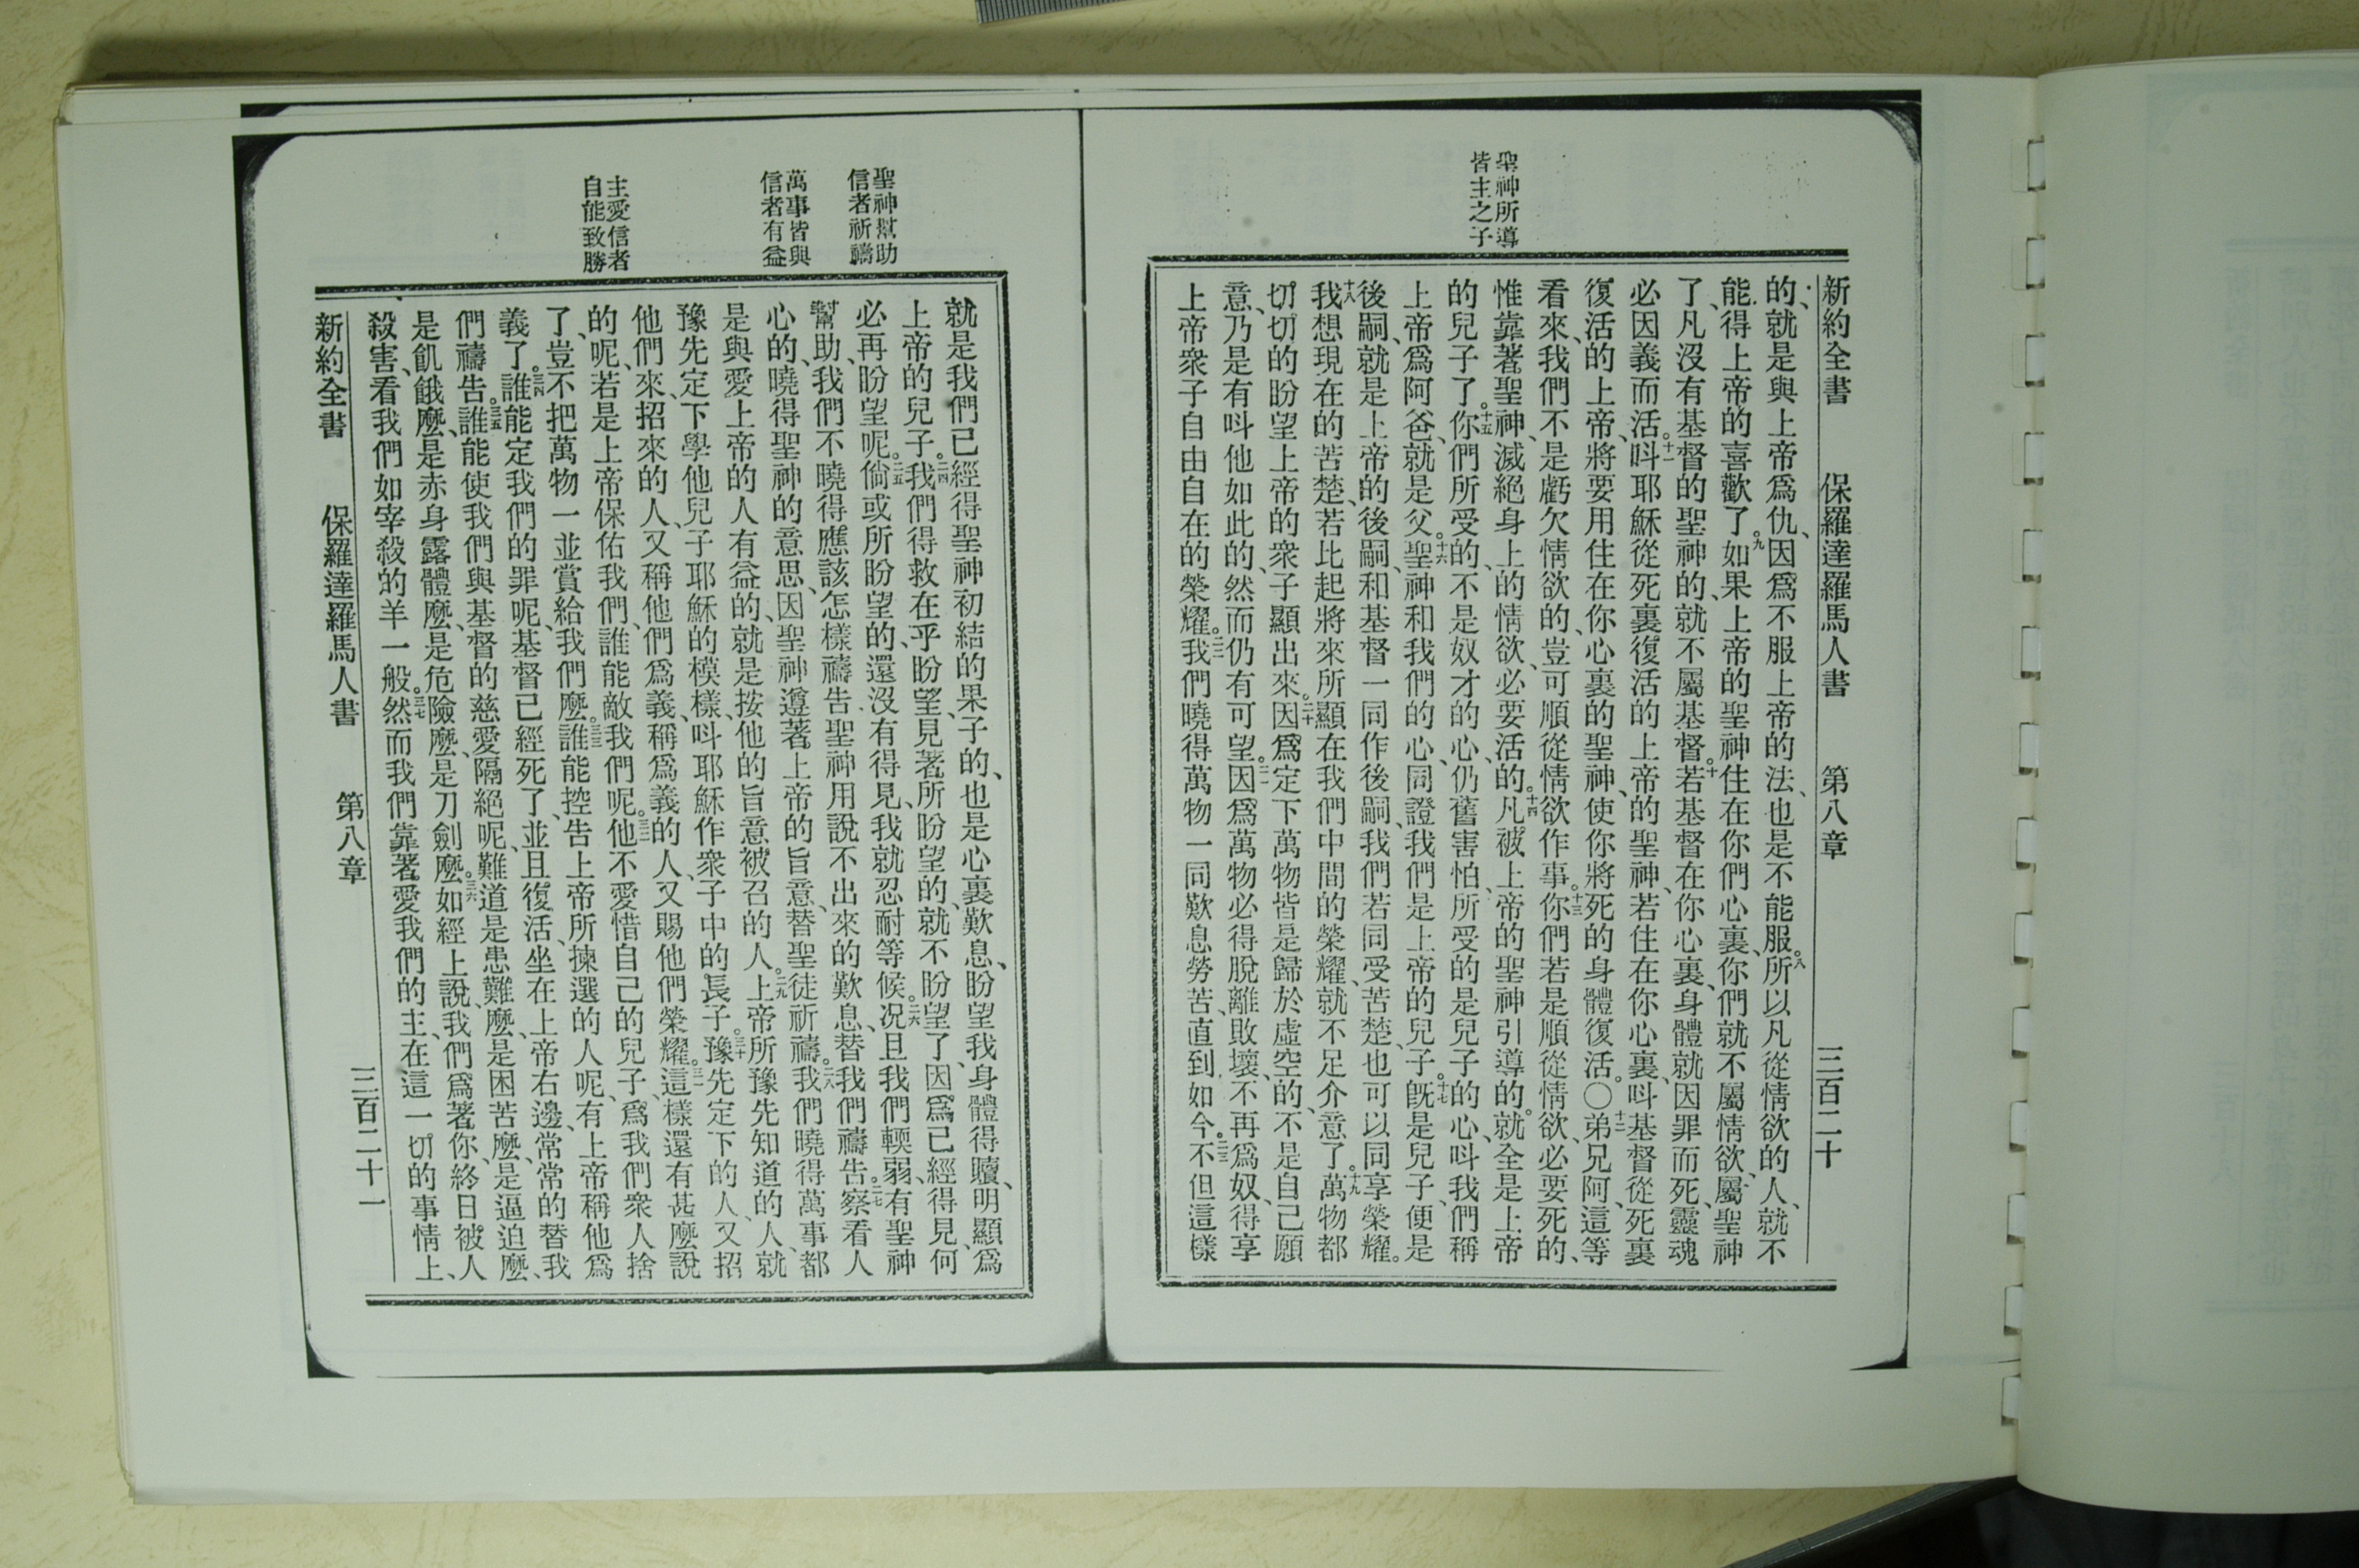 聖神所導
皆主之子
新約全書 保羅達羅馬人書 第八章 三百二十
的、就是與上帝爲仇、因爲不服上帝的法、也是不能服。八所以凡從情欲的人、就不
能得上帝的喜歡了。九如果上帝的聖神住在你們心裏、你們就不屬情欲、屬聖神
了、凡沒有基督的聖神的、就不屬基督。十若基督在你心裏、身體就因罪而死、靈魂
必因義而活。十一呌耶穌從死裏復活的上帝的聖神、若住在你心裏、呌基督從死裏
復活的上帝、將要用住在你心裏的聖神、使你將死的身體復活。〇十二弟兄阿、這等
看來、我們不是虧欠情欲的、豈可順從情欲作事。十三你們若是順從情欲、必要死的、
惟靠著聖神、滅絕身上的情欲、必要活的。十四凡被上帝的聖神引導的。就全是上帝
的兒子了。十五你們所受的、不是奴才的心、仍舊害怕、所受的是兒子的心、呌我們稱
上帝爲阿爸、就是父。十六聖神和我們的心、同證我們是上帝的兒子。十七旣是兒子、便是
後嗣、就是上帝的後嗣、和基督一同作後嗣、我們若同受苦楚、也可以同享榮耀。
十八我想現在的苦楚、若比起將來所顯在我們中間的榮耀、就不足介意了。十九萬物都
切切的盼望上帝的衆子顯出來。二十因爲定下萬物皆是歸於虛空的、不是自己願
意、乃是有呌他如此的、然而仍有可望。二一因爲萬物必得脫離敗壞、不再爲奴、得享
上帝衆子自由自在的榮耀。二二我們曉得萬物一同歎息勞苦、直到如今。二三不但這樣
聖神幫助
信者祈禱
萬事皆與
信者有益
主愛信者
自能致勝
就是我們已經得聖神初結的果子的、也是心裏歎息、盼望我身體得贖、明顯爲
上帝的兒子。二四我們得救在乎盼望、見著所盼望的、就不盼望了、因爲已經得見、何
必再盼望呢。二五倘或所盼望的、還沒有得見、我就忍耐等候。二六况且我們輭弱、有聖神
幫助、我們不曉得應該怎樣禱告聖神用說不出來的歎息、替我們禱告。二七察看人
心的、曉得聖神的意思、因聖神遵著上帝的旨意、替聖徒祈禱。二八我們曉得萬事都
是與愛上帝的人有益的、就是按他的旨意被召的人。二九上帝所豫先知道的人、就
豫先定下學他兒子耶穌的模樣、呌耶穌作衆子中的長子。三十豫先定下的人、又招
他們來、招來的人、又稱他們爲義、稱爲義的人、又賜他們榮耀。三一這樣還有甚麼說
的呢、若是上帝保佑我們、誰能敵我們呢。三二他不愛惜自己的兒子、爲我們衆人捨
了、豈不把萬物一並賞給我們麼。三三誰能控告上帝所揀選的人呢、有上帝稱他爲
義了。三四誰能定我們的罪呢、基督已經死了、並且復活、坐在上帝右邊、常常的替我
們禱告。三五誰能使我們與基督的慈愛隔絕呢、難道是患難麼、是困苦麼、是逼迫麼、
是飢餓麼、是赤身露體麼、是危險麼、是刀劍麼。三六如經上說、我們爲著你、終日被人
殺害、看我們如宰殺的羊一般。三七然而我們靠著愛我們的主、在這一切的事情上、
新約全書 保羅達羅馬人書 第八章 三百二十一